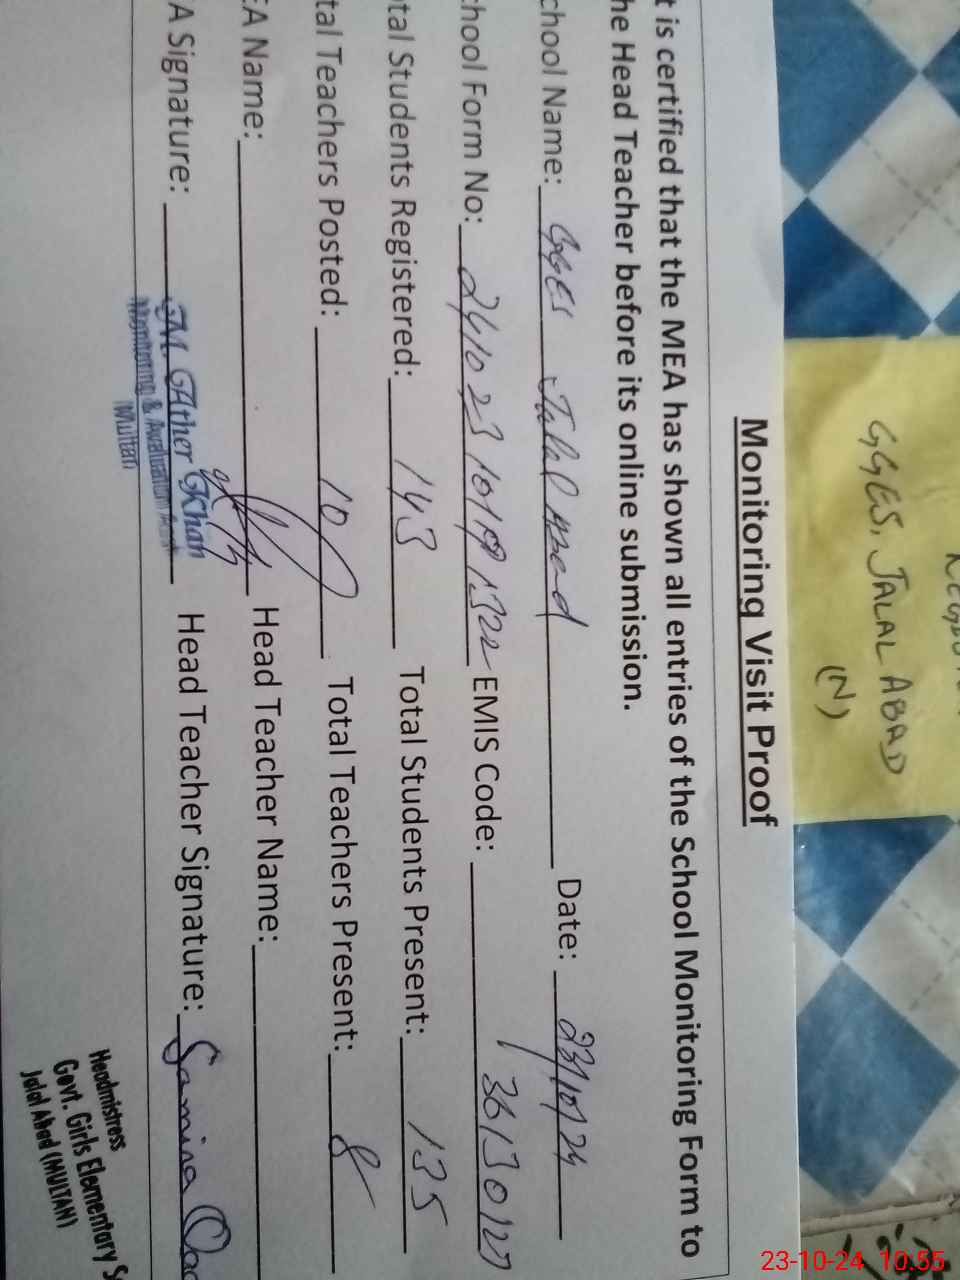 GGES, JALAL ABAD
(N)
Monitoring Visit Proof
t is certified that the MEA has shown all entries of the School Monitoring Form to
he Head Teacher before its online submission.
chool Name: GGES Jalal Abad Date: 23/10/24
chool Form No: EMIS Code: 36130127
tal Students Registered: 143 Total Students Present: 135
tal Teachers Posted: 10 Total Teachers Present: 8
EA Name: Head Teacher Name:
A Signature: M. Ather Khan Head Teacher Signature: Samina
Monitoring & Avaluation
(Multan)
Headmistress
Govt. Girls Elementary S
Jalal Abad (MULTAN)
23-10-24 10:55